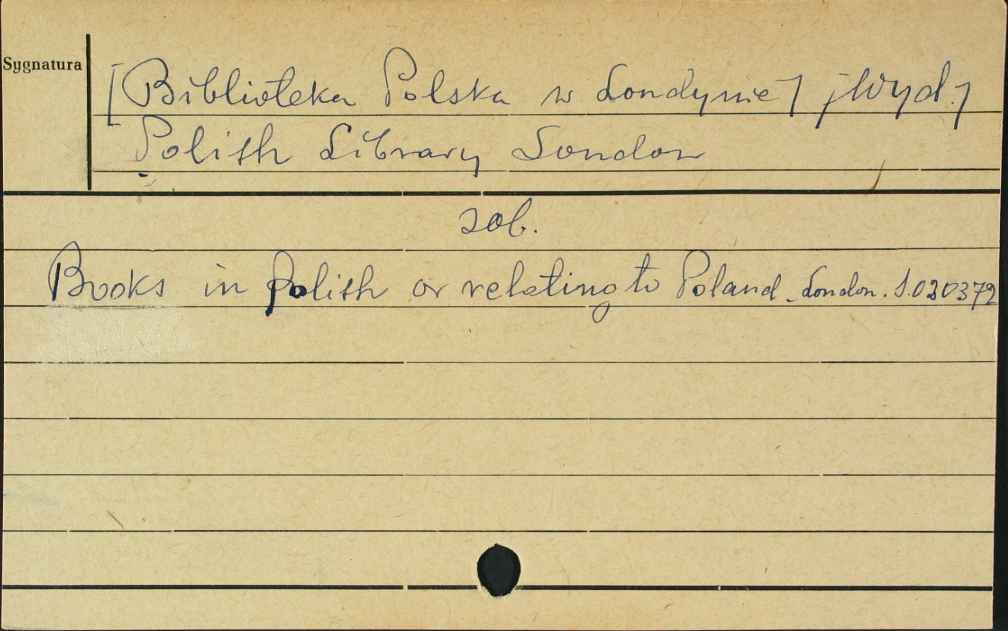 Sygnatura
[Biblioteka Polska w Londynie] /Wyd./
Polish Library London
zob.
Books in Polish or relating to Poland. London. S.020372